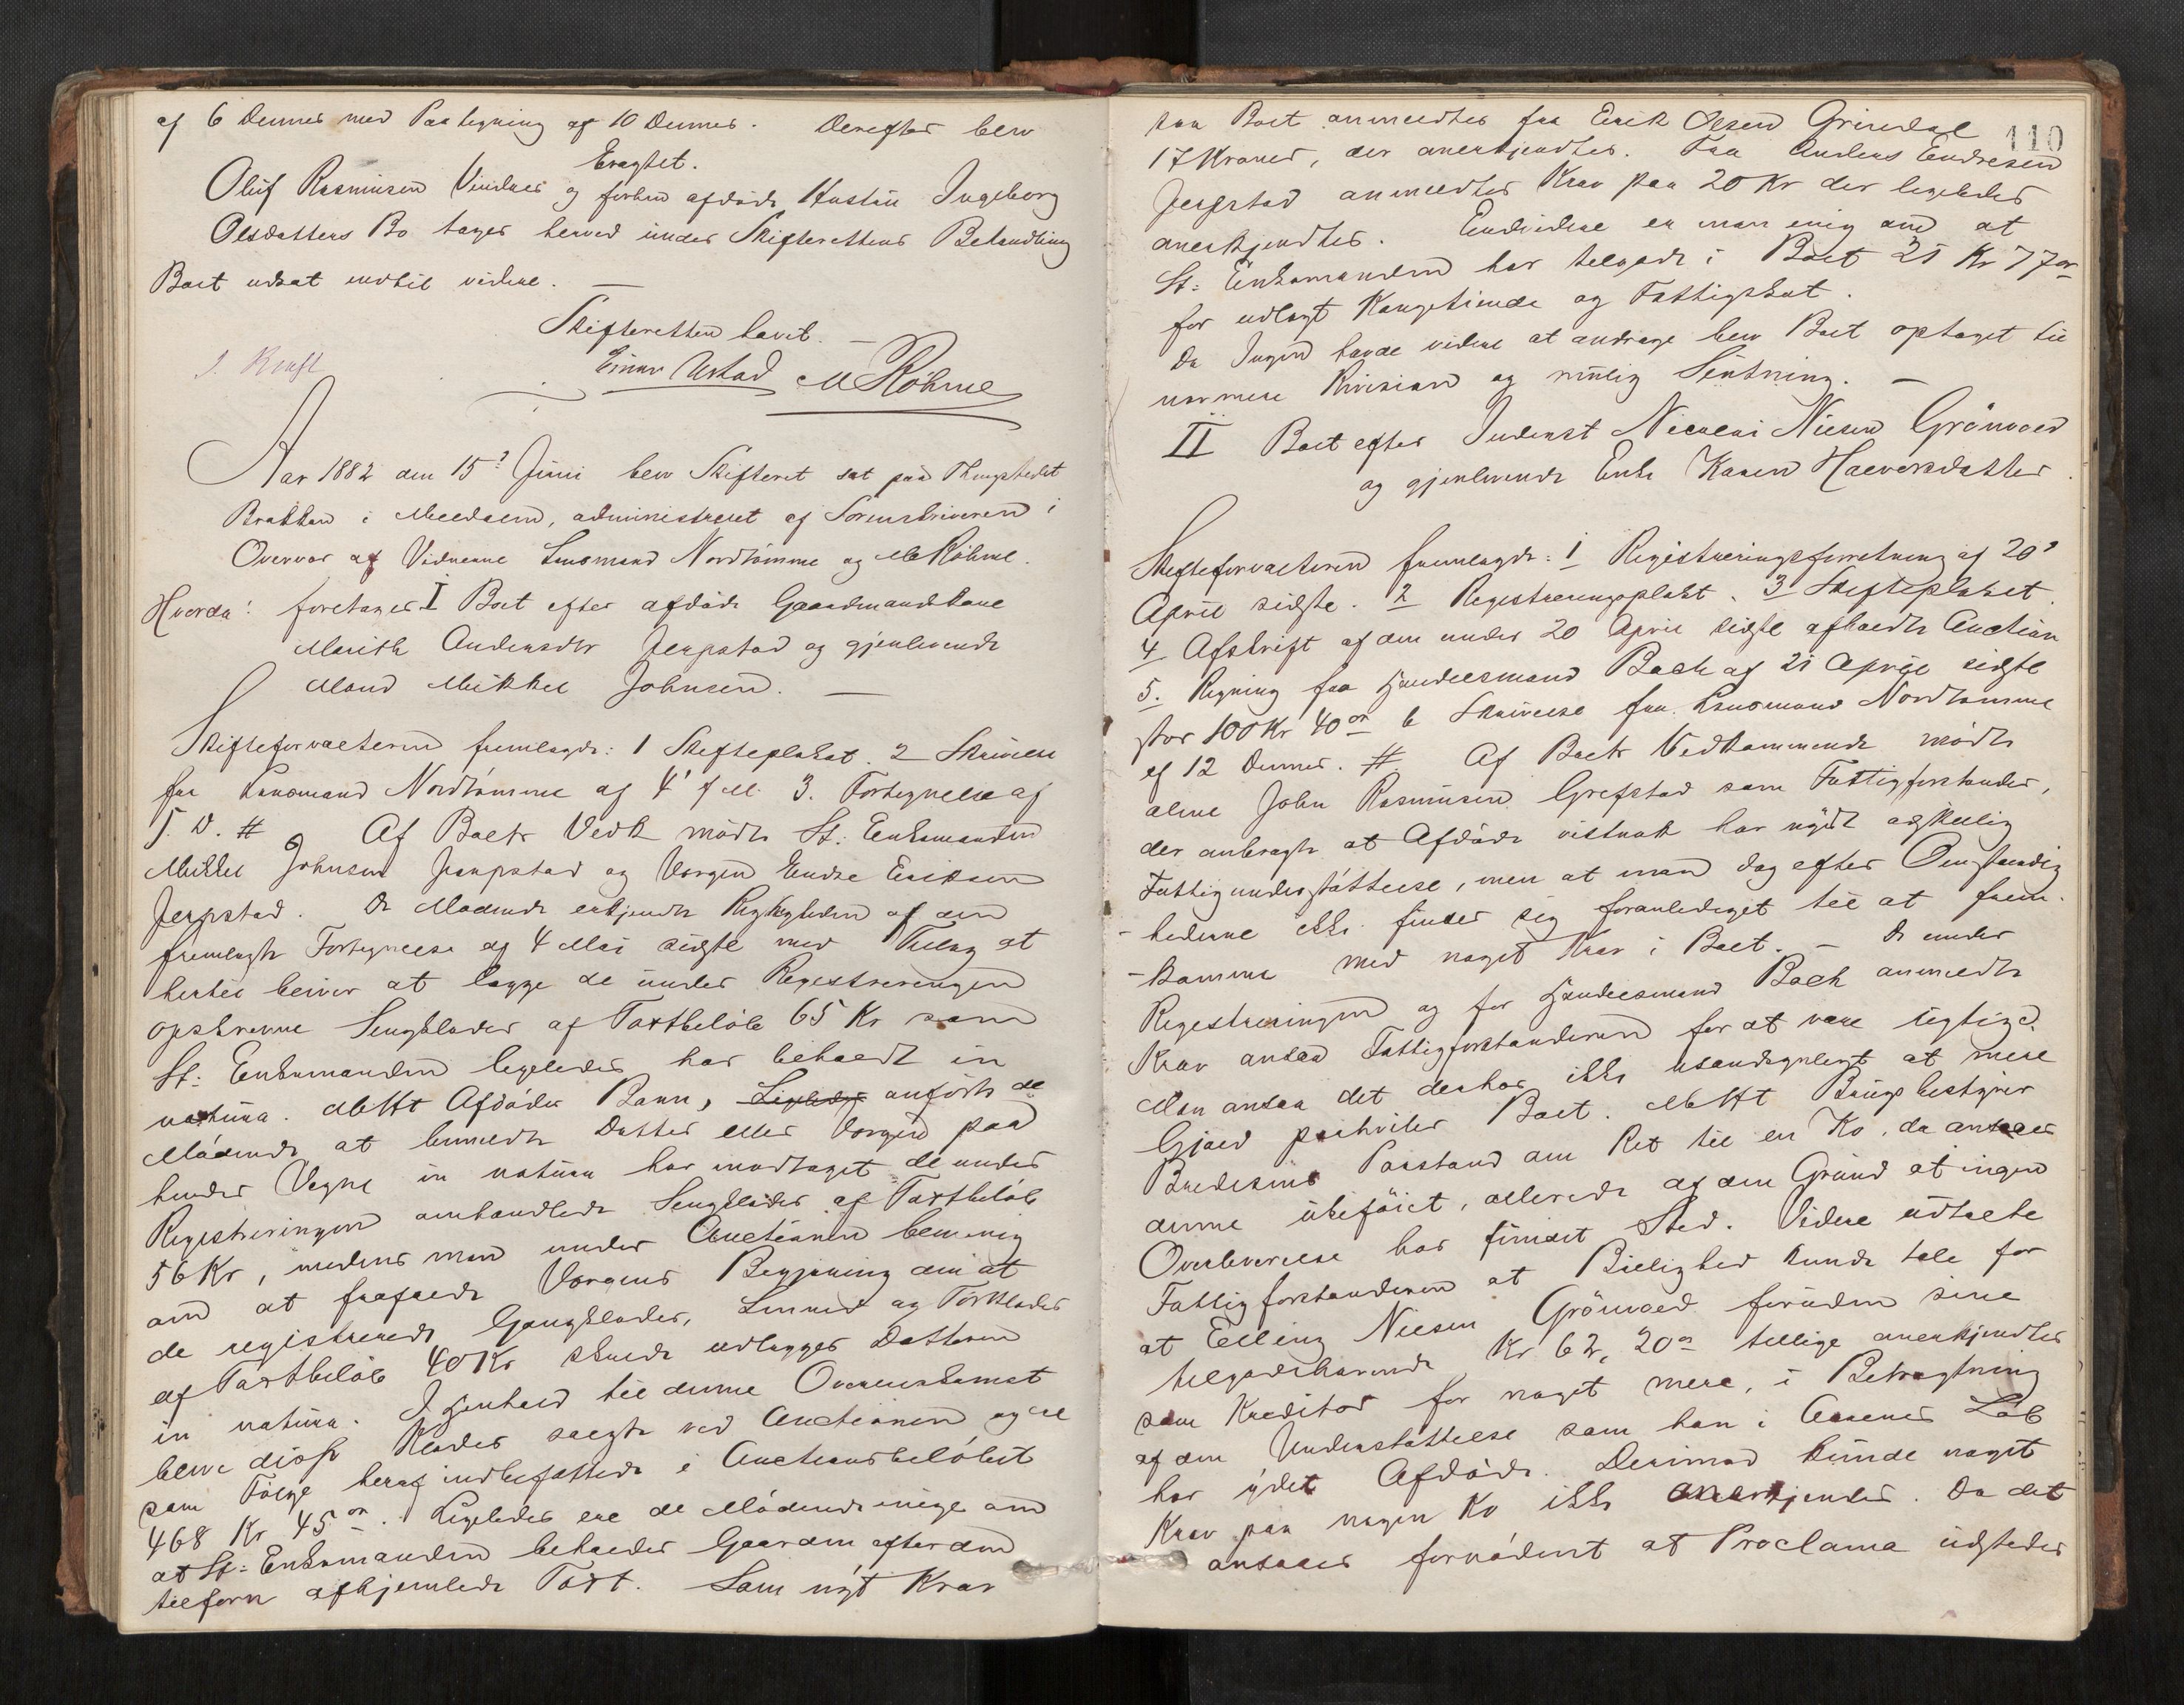 af 6 dennes med Paategning af 10 dennes. Derefter blev
Eragtet.
Oluf Rasmusen Vindnes og forhen afdøde Hustru Ingeborg
Olsdatters Bo tages herved under Skifterettens Behandling
Boet udsat indtil videre. —
Skifteretten hævet. —
Einar Ustad M Røhme
Aar 1882 den 15de Juni blev Skifteret sat paa Thingstedet
Brækken i Meldalen, administreret af Sorenskriveren i
Overvær af Vidnerne Lensmand Nordtømme og M Røhme.
Hvorda: foretages I Boet efter afdøde Gaardmandskone
Marith Andersdtr Jerpstad og gjenlevende
Mand Mikkel Johnsen. —
Skifteforvalteren fremlagde: 1 Skifteplakat. 2 Skrivelse
fra Lensmand Nordtømme af 4' f. M. 3. Fortegnelse af
S. D. # Af Boets Vedk mødte St: Enkemanden
Mikkel Johnsen Jerpstad og Værgen Endre Eriksen
Jerpstad. De Mødende erkjendte Rigtigheden af den
fremlagte Fortegnelse af 4 Mai sidste med Tillæg at
hertil bliver at lægge de under Registreringen
opskrevne Sengklæder af Taxtbeløb 65 Kr som
St: Enkemanden ligeledes har beholdt in
natura. Mht Afdødes Barn, Ligeledes anførte de
Mødende at bemeldte Datter eller Værgen paa
hendes Vegne in natura har modtaget de under
Registreringen omhandlede Sengklæder af Taxtbeløb
56 Kr, medens man under Auctionen blev enig
om at frafalde Værgens Begjæring om at
de registrerede Gangklæder, Linned og Tørklæder
af Taxtbeløb 40 Kr skulde udlægges Datteren
in natura. I Henhold til denne Overenskomst
bleve disse Klæder solgte ved Auctionen og ere
som Følge heraf indbefattede i Auctionsbeløbet
468 Kr 45 ør. Ligeledes ere de Mødende enige om
at St: Enkemanden beholder Gaarden efter den
tilforn afhjemlede Taxt. Som nyt Krav
110
paa Boet anmeldtes fra Erik Olsen Grindal
17 Kroner, der anerkjendtes. Fra Anders Endresen
Jerpstad anmeldtes Krav paa 20 Kr der ligeledes
anerkjendtes. Endvidere er man enig om at
St: Enkemanden har tilgode i Boet 21 Kr 77 ør
for udlagt Kongetiende og Fattigskat.
Da Ingen havde videre at andrage blev Boet optaget til
nærmere Revision og mulig Slutning. —
II Boet efter Inderst Nicolai Nilsen Grønvold
og gjenlevende Enke Karen Halvorsdatter.
Skifteforvalteren fremlagde: 1 Registreringsforretning af 20de
April sidste. 2 Registreringsplakt. 3 Skifteplakat.
4 Afskrift af den under 20 April sidste afholdte Auction
5. Regning fra Handelsmand Bach af 21 April sidste
stor 100 Kr 40 ør 6 Skrivelse fra Lensmand Nordtømme
af 12 dennes. # Af Boets Vedkommende mødte
alene John Rasmusen Grefstad som Fattigforstander,
der anbragte at Afdøde vistnok har nydt adskillig
Fattigunderstøttelse, men at man dog efter Omstændig
-hederne ikke finder sig foranlediget til at frem-
-komme med noget Krav i Boet. — De under
Registreringen og for Handelsmand Bach anmeldte
Krav ansaa Fattigforstanderen for at være rigtige.
Man ansaa det derhos ikke usandsynligt at mere
Gjæld paahviler Boet. Mht Brugsbestyrer
Bredesens Paastand om Ret til en Ko, da ansaaes
denne ubeføiet, allerede af den Grund at ingen
Overleverelse har fundet Sted. Videre udtalte
Fattigforstanderen at Billighed kunde tale for
at Elling Nilsen Grønvold foruden sine
tilgodehavende Kr 62, 20 ør tillige anerkjendtes
som Kreditor for noget mere, i Betragtning
af den Understøttelse som han i Aarenes Løb
har ydet Afdøde. Derimod kunde noget
Krav paa nogen Ko ikke anerkjendes. Da det
ansaaes fornødent at Proclama udstedes